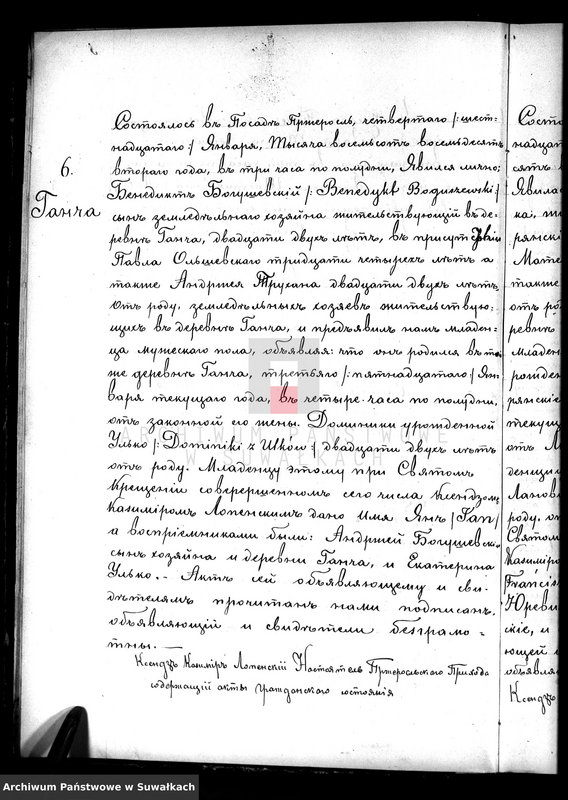 6.
Ганча
Состоялось въ Посадѣ Пржеросль, четвертаго /: шест-
надцатаго :/ Января, Тысяча восемьсотъ восемьдесятъ
втораго года, въ три часа по полудни, Явился лично:
Бенедиктъ Богушевскій /: Benedykt Boguszewski :/
сынъ земледѣльнаго хозяйна жительствующій въ де-
ревнѣ Ганча, двадцати двухъ лѣтъ, въ присутствіи
Павла Ольшевскаго тридцати четырехъ лѣтъ а
также Андржея Трухана двадцати двухъ лѣтъ
отъ роду, земледѣльныхъ хозяевъ жительствую-
щихъ въ деревнѣ Ганча, и предъявилъ намъ младен-
ца мужескаго пола, объявляя: что онъ родился въ той
же деревнѣ Ганча, третьяго /: пятнадцатаго :/ Ян-
варя текущаго года, въ четыре часа по полудни,
отъ законной его жены. Доминики урожденной
Улько /: Dominiki z Ulków :/ двадцати двухъ лѣтъ
отъ роду. Младенцу этому при Святомъ
Крещеніи совершенномъ сего числа Ксендзомъ
Казимѣромъ Лопенскимъ дано имя Янъ /Jan/
а воспріемниками были: Андржей Богушевскі
сынъ хозяйна и деревни Ганча, и Екатерина
Улько. - Актъ сей объявляющему и сви-
дѣтелямъ прочитанъ, нами подписанъ,
объявляющій и свидѣтели безграмо-
тны. —
Ксендзъ Казимѣръ Лопенскій Настоятель Пржеросльскаго Прихода
содержащій акты гражданскаго состоянія
Состо
надцат
сятъ
Явила
ка, т
рянскі
Мате
также
отъ ро
ревнѣ
младен
рожден
рянскіе
текущ
отъ М
денщи
Ланов
роду. от
Святом
Казимѣро
Francis
Юреви
скіе, и
ющей
объявля
Ксендзъ
ARCHIWUM PAŃSTWOWE
W SUWAŁKACH
Archiwum Państwowe w Suwałkach